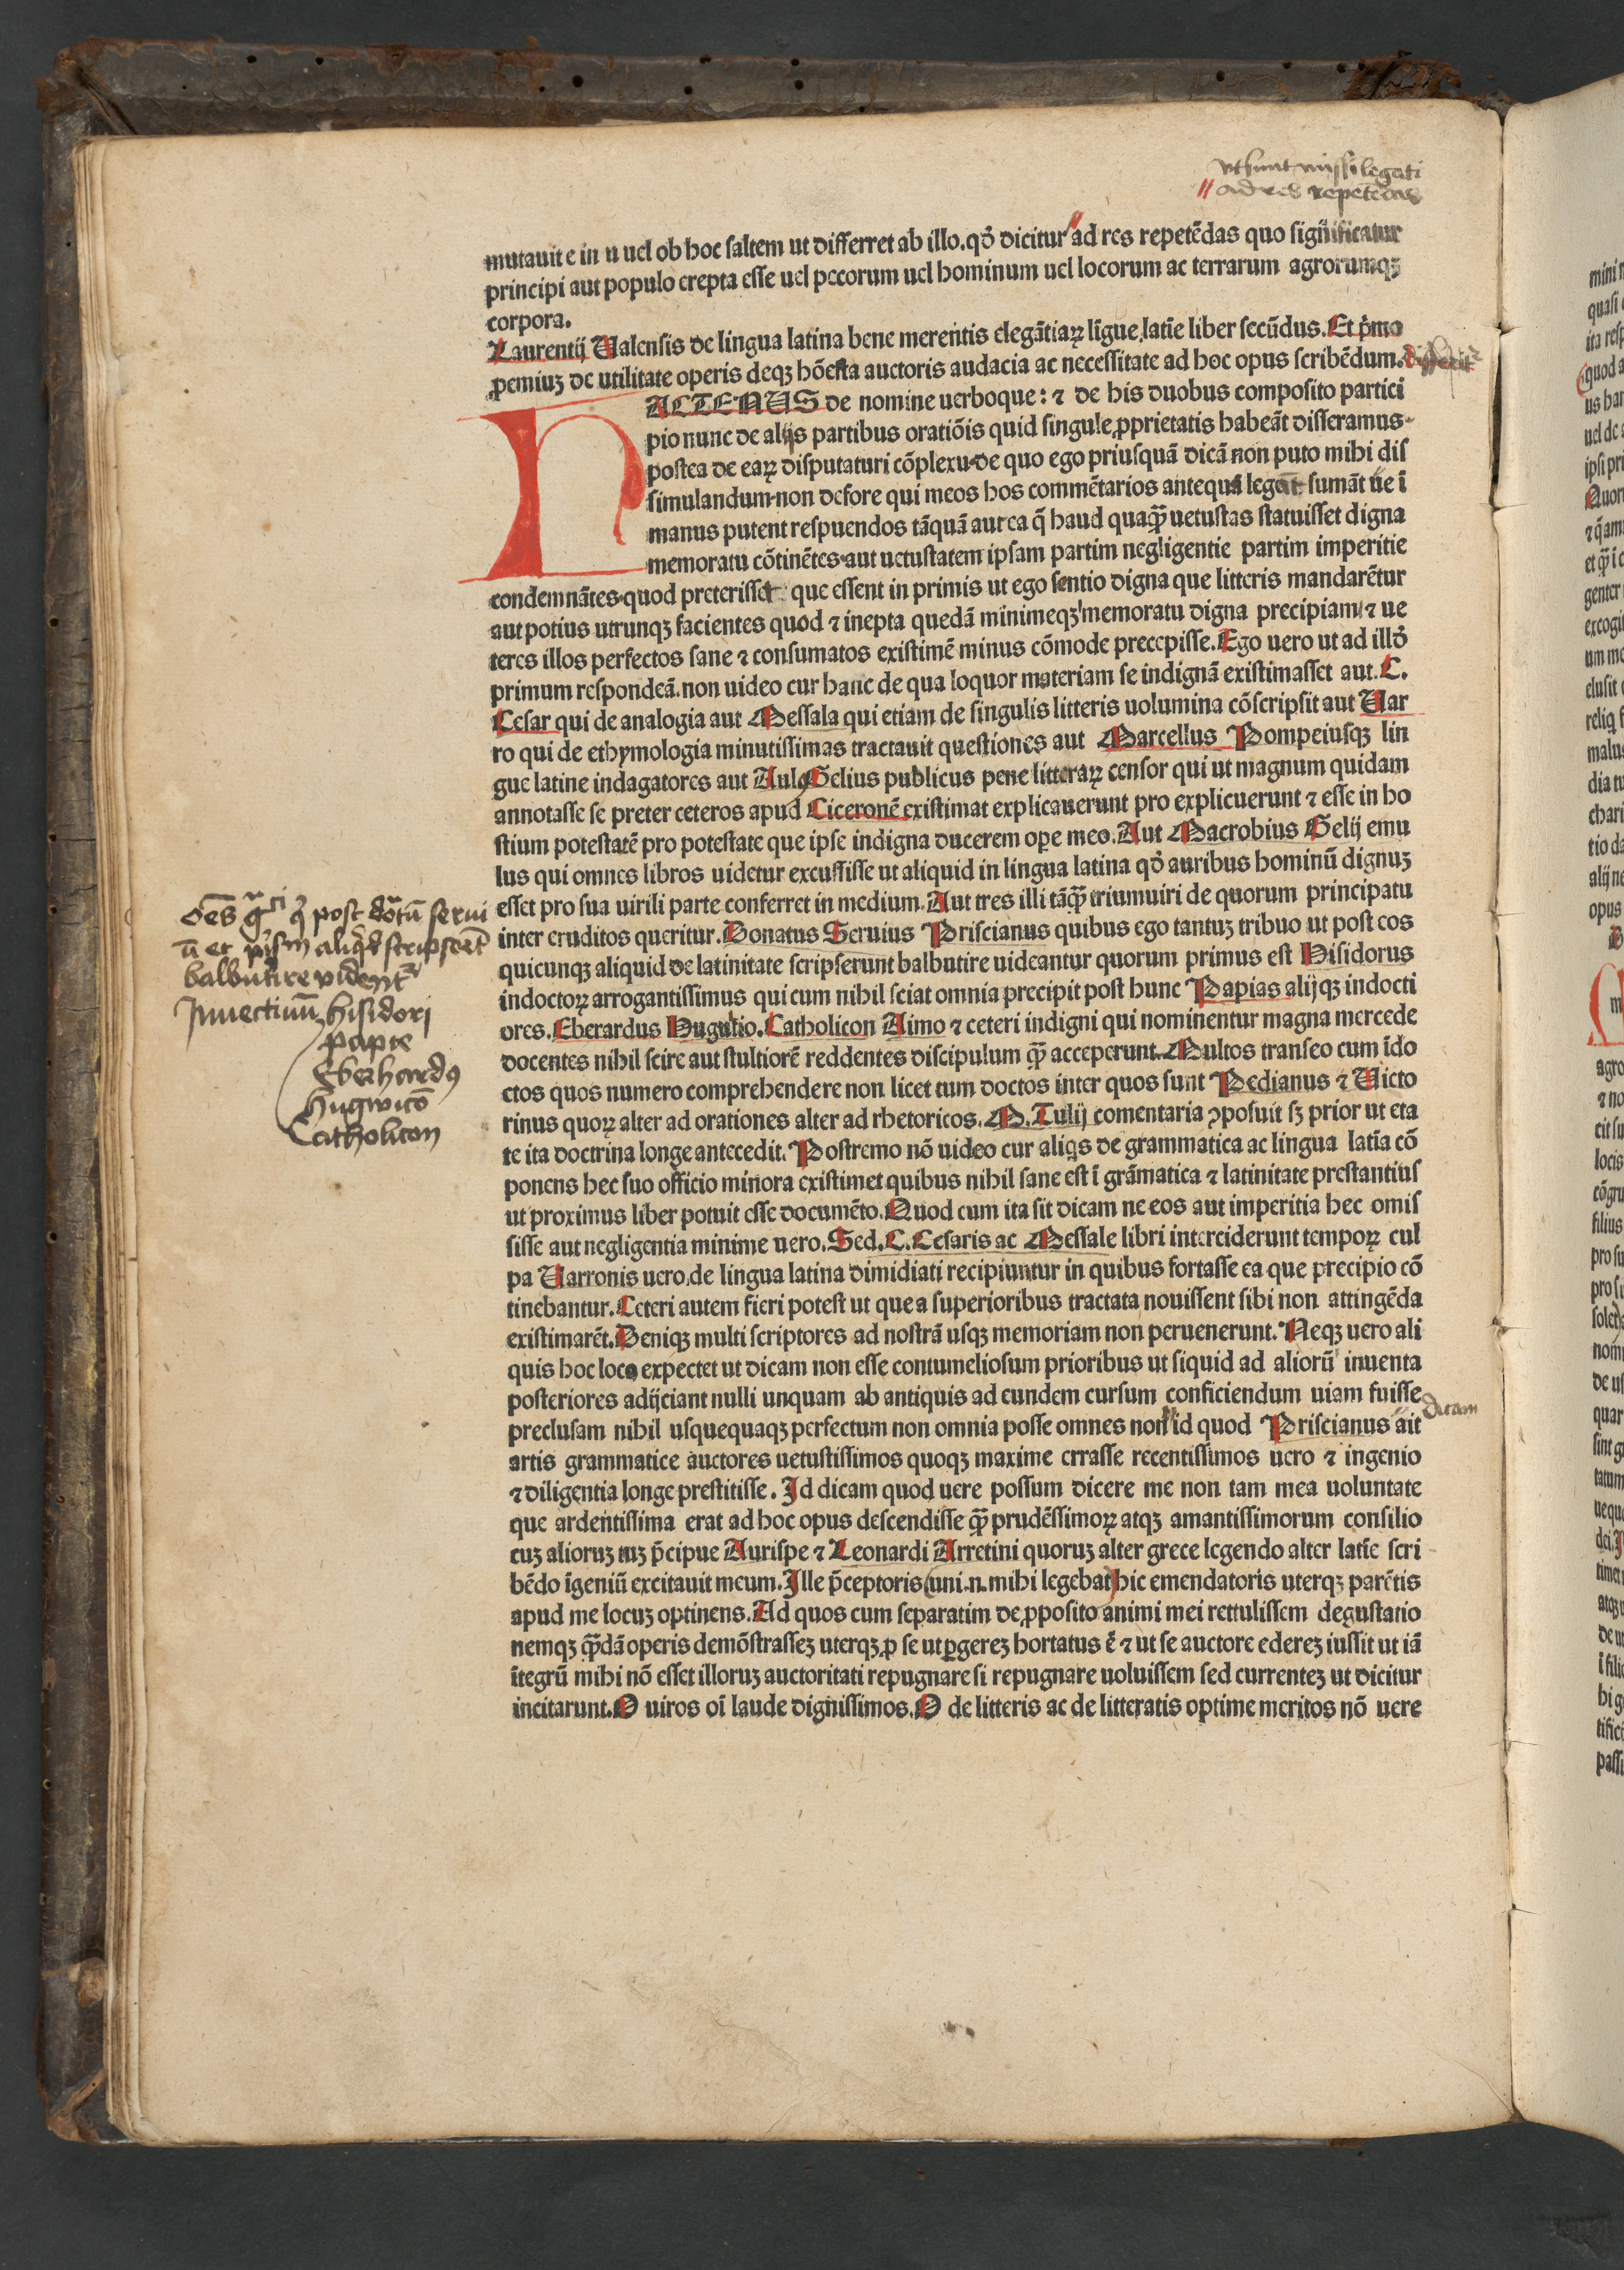 vt sunt missi legati
ad res repetēdas
mutauit e in u uel ob hoc ſaltem ut differret ab illo. qđ dicitur ad res repetēdas quo ſignificatur
principi aut populo erepta eſſe uel pecorum uel hominum uel locorum ac terrarum agrorumqꝫ
corpora.
Laurentij Ualenſis de lingua latina bene merentis elegātiaꝝ līgue latīe liber ſecūdus. Et p̄mo
ꝓemiuꝫ de utilitate operis deqꝫ hōeſta auctoris audacia ac neceſſitate ad hoc opus ſcribēdum.
HACTENUS de nomine uerboque: ⁊ de his duobus compoſito partici
pio nunc de alijs partibus oratiōis quid ſingule ꝓprietatis habeāt diſſeramus
poſtea de eaꝝ diſputaturi cōplexu de quo ego priuſquā dicā non puto mihi diſ
ſimulandum non defore qui meos hos commētarios antequā legāt ſumāt ue ī
manus putent reſpuendos tāquā aut ea q̄ haud quaqꝫ uetuſtas ſtatuiſſet digna
memoratu cōtinētes aut uetuſtatem ipſam partim negligentie partim imperitie
condemnātes quod preteriſſet que eſſent in primis ut ego ſentio digna que litteris mandarētur
aut potius utrunqꝫ facientes quod ⁊ inepta quedā minimeqꝫ memoratu digna precipiam ⁊ ue
teres illos perfectos ſane ⁊ conſumatos exiſtimē minus cōmode precepiſſe. Ego uero ut ad illđ
primum reſpondeā. non uideo cur hanc de qua loquor materiam ſe indignā exiſtimaſſet aut. C.
Ceſar qui de analogia aut Meſſala qui etiam de ſingulis litteris uolumina cōſcripſit aut Uar
ro qui de ethymologia minutiſſimas tractauit queſtiones aut Marcellus Pompeiuſqꝫ lin
gue latine indagatores aut Aulꝯ Gelius publicus pene litteraꝝ cenſor qui ut magnum quidam
annotaſſe ſe preter ceteros apud Ciceronē exiſtimat explicauerunt pro explicuerunt ⁊ eſſe in ho
ſtium poteſtatē pro poteſtate que ipſe indigna ducerem oꝑe meo. Aut Macrobius Gelij emu
lus qui omnes libros uidetur excuſſiſſe ut aliquid in lingua latina qđ auribus hominū dignuꝫ
eſſet pro ſua uirili parte conferret in medium. Aut tres illi tāqꝫ triumuiri de quorum principatu
inter eruditos queritur. Donatus Seruius Priſcianus quibus ego tantuꝫ tribuo ut poſt eos
quicunqꝫ aliquid de latinitate ſcripſerunt balbutire uideantur quorum primus eſt Hiſidorus
indoctoꝝ arrogantiſſimus qui cum nihil ſciat omnia precipit poſt hunc Papias alijqꝫ indocti
ores. Eberardus Hugutio. Catholicon Aimo ⁊ ceteri indigni qui nominentur magna mercede
docentes nihil ſcire aut ſtultiorē reddentes diſcipulum qꝫ acceperunt. Multos tranſeo cum īdo
ctos quos numero comprehendere non licet tum doctos inter quos ſunt Pedianus ⁊ Uicto
rinus quoꝝ alter ad orationes alter ad rhetoricos. M. Tulij comentaria ꝯpoſuit ſꝫ prior ut eta
te ita doctrina longe antecedit. Poſtremo nō uideo cur aliqs de grammatica ac lingua latīa cō
ponens hec ſuo officio minora exiſtimet quibus nihil ſane eſt ī grāmatica ⁊ latinitate preſtantiuſ
ut proximus liber potuit eſſe documēto. Quod cum ita ſit dicam ne eos aut imperitia hec omiſ
ſiſſe aut negligentia minime uero. Sed. C. Ceſaris ac Meſſale libri interciderunt tempoꝝ cul
pa Uarronis uero de lingua latina dimidiati recipiuntur in quibus fortaſſe ea que precipio cō
tinebantur. Ceteri autem fieri poteſt ut que a ſuperioribus tractata nouiſſent ſibi non attingēda
exiſtimarēt. Deniqꝫ multi ſcriptores ad noſtrā uſqꝫ memoriam non peruenerunt. Neqꝫ uero ali
quis hoc loco expectet ut dicam non eſſe contumelioſum prioribus ut ſiquid ad aliorū inuenta
poſteriores adijciant nulli unquam ab antiquis ad eundem curſum conficiendum uiam fuiſſe
dicam
precluſam nihil uſquequaqꝫ perfectum non omnia poſſe omnes non id quod Priſcianus ait
artis grammatice auctores uetuſtiſſimos quoqꝫ maxime erraſſe recentiſſimos uero ⁊ ingenio
⁊ diligentia longe preſtitiſſe. Id dicam quod uere poſſum dicere me non tam mea uoluntate
que ardentiſſima erat ad hoc opus deſcendiſſe qꝫ prudēſſimoꝝ atqꝫ amantiſſimorum conſilio
cuꝫ alioruꝫ tuꝫ p̄cipue Auriſpe ⁊ Leonardi Arretini quoruꝫ alter grece legendo alter latīe ſcri
bēdo īgeniū excitauit meum. Ille p̄ceptoris (uni. n. mihi legebat) hic emendatoris uterqꝫ parētis
apud me locuꝫ optinens. Ad quos cum ſeparatim de ꝓpoſito animi mei rettuliſſem deguſtatio
nemqꝫ qꝫdā operis demōſtraſſeꝫ uterqꝫ ꝓ ſe ut ꝑgereꝫ hortatus ē ⁊ ut ſe auctore edereꝫ iuſſit ut iā
ītegrū mihi nō eſſet illoruꝫ auctoritati repugnare ſi repugnare uoluiſſem ſed currenteꝫ ut dicitur
incitarunt. O uiros oī laude digniſſimos. O de litteris ac de litteratis optime meritos nō uere
oēs gᵃᶜⁱ q̇ post dōtū serui
ū et p̄sm aliqđ scripserēt
balbutire vident᷑
Inuectiuū hisidori
papie
Eberhardꝯ
hugwicō
Catholicon